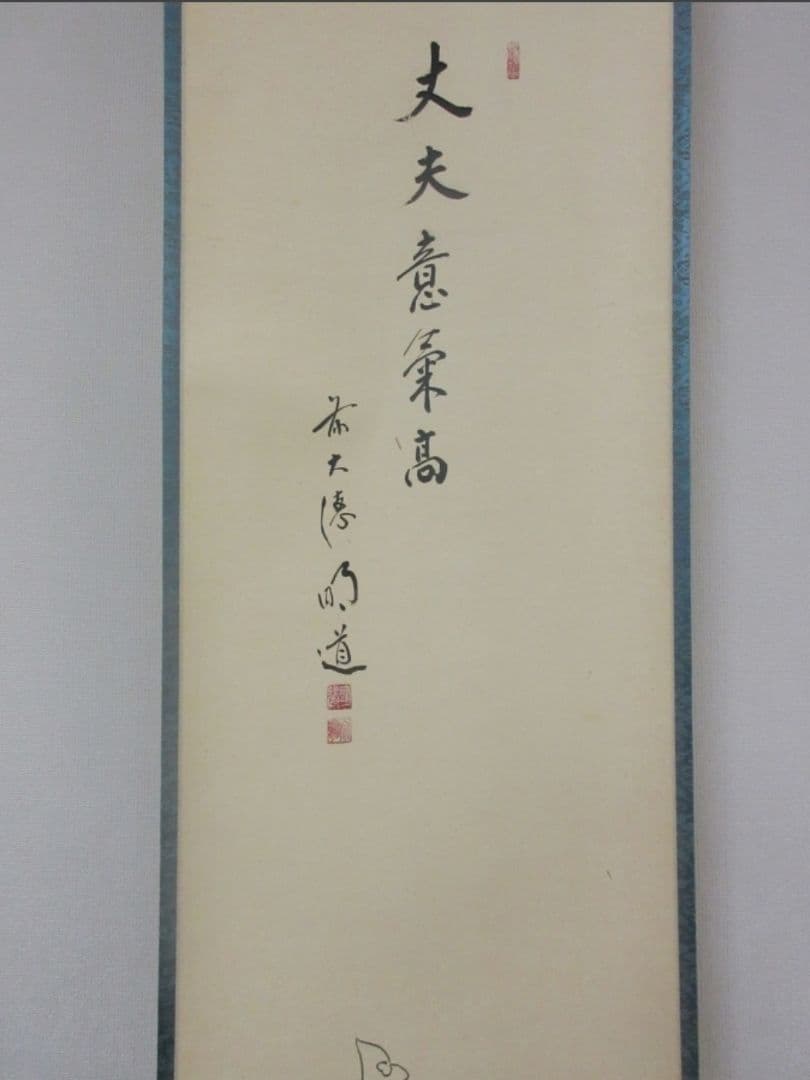 丈夫意氣高
前大徳明道